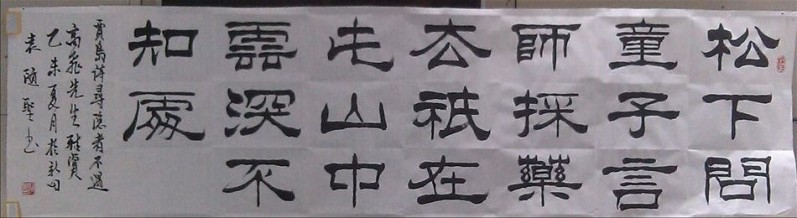 松下問
童子言
師採藥
去祇在
此山中
雲深不
知處
賈島詩尋隱者不遇
高飛先生雅賞
乙未夏月於
袁隨書